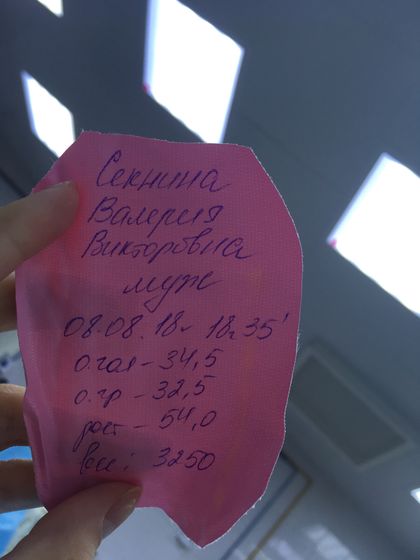 Секнина
Валерия
Викторовна
муж
08.08.18г 18ч 35'
о.гол - 34,5
о.гр - 32,5
рост - 54,0
вес: 3250